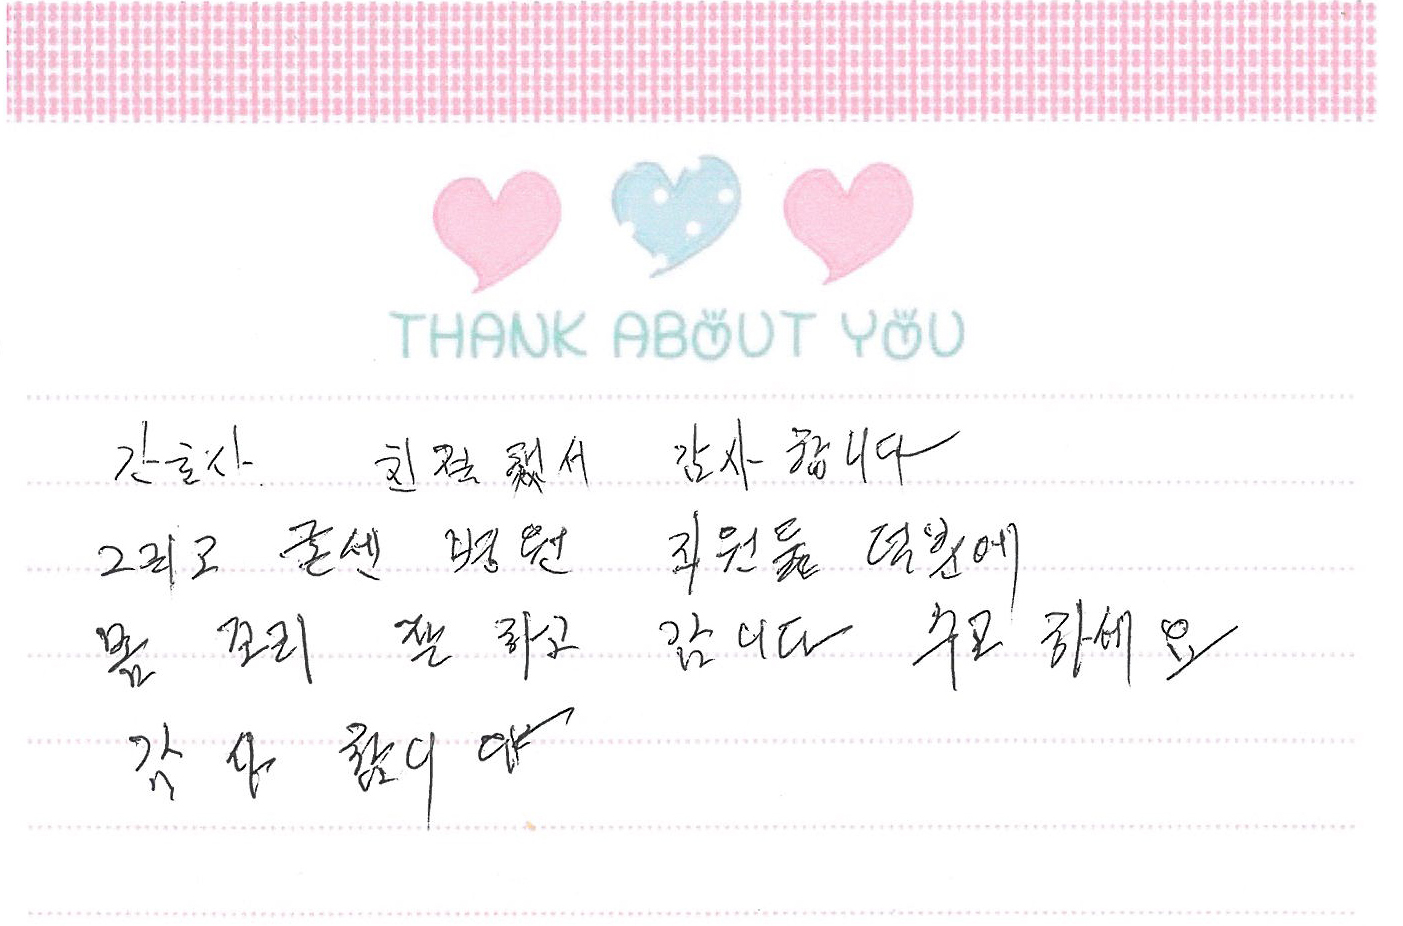 THANK ABOUT YOU
간호사 친절했서 감사합니다
그리고 굳센 병원 직원들 덕분에
몸 조리 잘 하고 갑니다 수고 하세요
감사 합니다